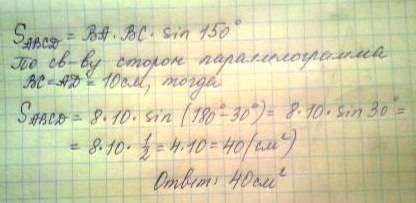 S_ABCD = BA · BC · sin 150°
По св-ву сторон параллелограмма
BC = AD = 10см, тогда
S_ABCD = 8·10· sin (180°-30°) = 8·10· sin 30° =
= 8·10· 1/2 = 4·10 = 40 (см²)
Ответ: 40см²